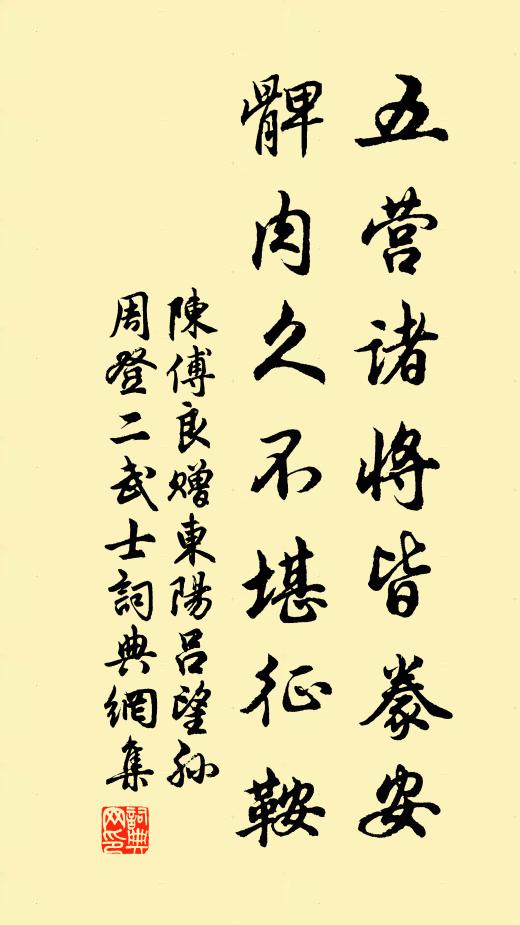 五营诸将皆豢安
髀肉久不堪征鞍
陳傅良赠東陽吕望孙
周登二武士詞典網集
詞典
网印